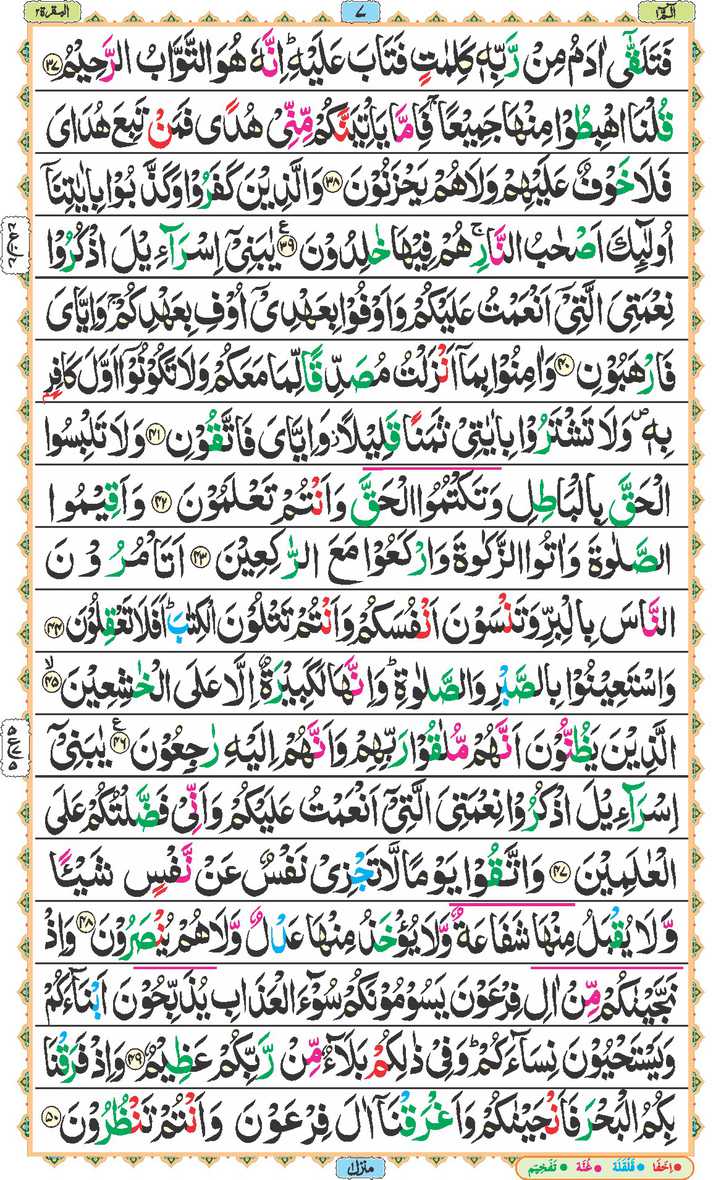 الٓمّٓ ١ ٧ البقرة ٢
فَتَلَقّٰۤى اٰدَمُ مِنْ رَّبِّهٖ كَلِمٰتٍ فَتَابَ عَلَيْهِ ؕ اِنَّهٗ هُوَ التَّوَّابُ الرَّحِيْمُ ﴿۳۷﴾
قُلْنَا اهْبِطُوْا مِنْهَا جَمِيْعًا ۚ فَاِمَّا يَاْتِيَنَّكُمْ مِّنِّيْ هُدًى فَمَنْ تَبِعَ هُدَايَ
فَلَا خَوْفٌ عَلَيْهِمْ وَلَا هُمْ يَحْزَنُوْنَ ﴿۳۸﴾ وَالَّذِيْنَ كَفَرُوْا وَكَذَّبُوْا بِاٰيٰتِنَاۤ
اُولٰٓئِكَ اَصْحٰبُ النَّارِ ۚ هُمْ فِيْهَا خٰلِدُوْنَ ﴿۳۹﴾ ع يٰبَنِيْۤ اِسْرَآءِيْلَ اذْكُرُوْا
نِعْمَتِيَ الَّتِيْۤ اَنْعَمْتُ عَلَيْكُمْ وَاَوْفُوْا بِعَهْدِيْۤ اُوْفِ بِعَهْدِكُمْ ۚ وَاِيَّايَ
فَارْهَبُوْنِ ﴿۴۰﴾ وَاٰمِنُوْا بِمَاۤ اَنْزَلْتُ مُصَدِّقًا لِّمَا مَعَكُمْ وَلَا تَكُوْنُوْۤا اَوَّلَ كَافِرٍۭ
بِهٖ ۪ وَلَا تَشْتَرُوْا بِاٰيٰتِيْ ثَمَنًا قَلِيْلًا ؗ وَّاِيَّايَ فَاتَّقُوْنِ ﴿۴۱﴾ وَلَا تَلْبِسُوا
الْحَقَّ بِالْبَاطِلِ وَتَكْتُمُوا الْحَقَّ وَاَنْتُمْ تَعْلَمُوْنَ ﴿۴۲﴾ وَاَقِيْمُوا
الصَّلٰوةَ وَاٰتُوا الزَّكٰوةَ وَارْكَعُوْا مَعَ الرّٰكِعِيْنَ ﴿۴۳﴾ اَتَاْمُرُوْنَ
النَّاسَ بِالْبِرِّ وَتَنْسَوْنَ اَنْفُسَكُمْ وَاَنْتُمْ تَتْلُوْنَ الْكِتٰبَ ؕ اَفَلَا تَعْقِلُوْنَ ﴿۴۴﴾
وَاسْتَعِيْنُوْا بِالصَّبْرِ وَالصَّلٰوةِ ؕ وَاِنَّهَا لَكَبِيْرَةٌ اِلَّا عَلَى الْخٰشِعِيْنَ ﴿۴۵﴾ ۙ
الَّذِيْنَ يَظُنُّوْنَ اَنَّهُمْ مُّلٰقُوْا رَبِّهِمْ وَاَنَّهُمْ اِلَيْهِ رٰجِعُوْنَ ﴿۴۶﴾ ع يٰبَنِيْۤ
اِسْرَآءِيْلَ اذْكُرُوْا نِعْمَتِيَ الَّتِيْۤ اَنْعَمْتُ عَلَيْكُمْ وَاَنِّيْ فَضَّلْتُكُمْ عَلَى
الْعٰلَمِيْنَ ﴿۴۷﴾ وَاتَّقُوْا يَوْمًا لَّا تَجْزِيْ نَفْسٌ عَنْ نَّفْسٍ شَيْـًٔا
وَّلَا يُقْبَلُ مِنْهَا شَفَاعَةٌ وَّلَا يُؤْخَذُ مِنْهَا عَدْلٌ وَّلَا هُمْ يُنْصَرُوْنَ ﴿۴۸﴾ وَاِذْ
نَجَّيْنٰكُمْ مِّنْ اٰلِ فِرْعَوْنَ يَسُوْمُوْنَكُمْ سُوْٓءَ الْعَذَابِ يُذَبِّحُوْنَ اَبْنَآءَكُمْ
وَيَسْتَحْيُوْنَ نِسَآءَكُمْ ؕ وَفِيْ ذٰلِكُمْ بَلَآءٌ مِّنْ رَّبِّكُمْ عَظِيْمٌ ﴿۴۹﴾ وَاِذْ فَرَقْنَا
بِكُمُ الْبَحْرَ فَاَنْجَيْنٰكُمْ وَاَغْرَقْنَاۤ اٰلَ فِرْعَوْنَ وَاَنْتُمْ تَنْظُرُوْنَ ﴿۵۰﴾
اِخفَا قَلقَلَة غُنَّة تَفخِيم منزل ١